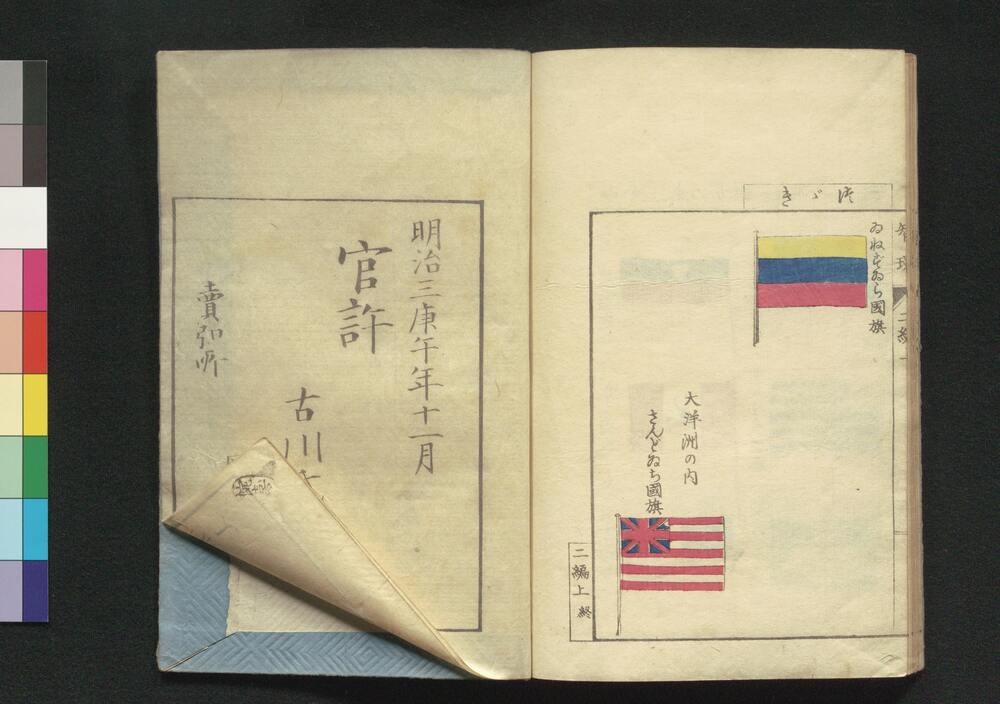 つゞき
智環
二編上
ゐねずゐら國旗
大洋洲の内
さんどゐち國旗
二編上 終
明治三庚午年十一月
官許
古川
賣弘所